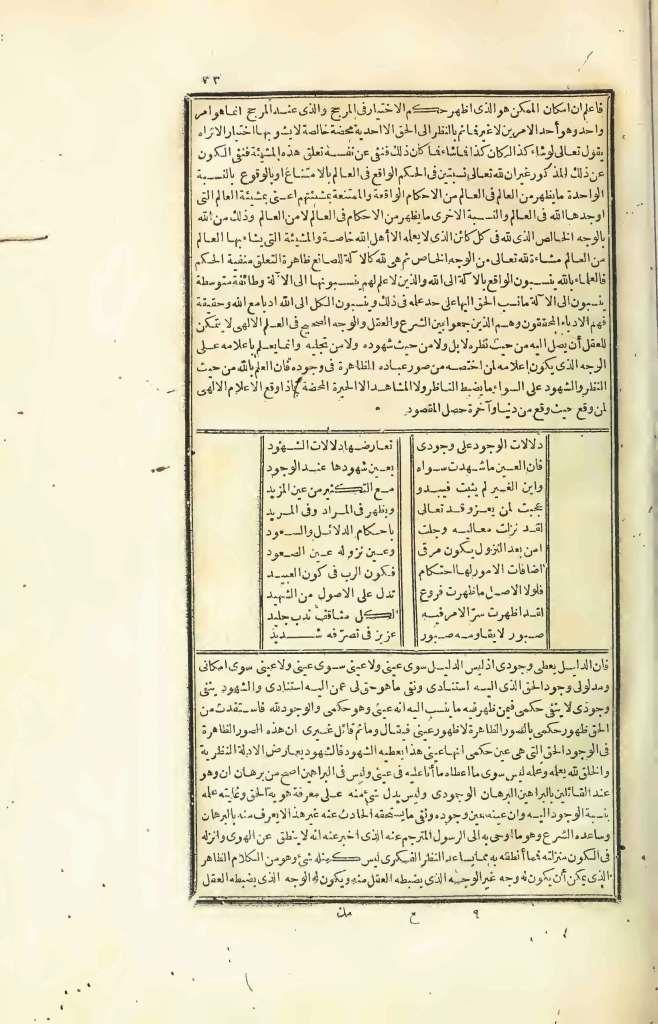 ٣٣
فاعلم ان امكان الممكن هو الذى اظهر حكم الاختيار فى المرجح والذى عند المرجح انما هو امر
واحد وهو أحد الامرين لا غير فما ثم بالنظر الى الحق الا احدية محضة خالصة لا يشوبها اختيار الا تراه
يقول تعالى لو شاء كذا لكان كذا فما شاء فما كان ذلك فنفى عن نفسه تعلق هذه المشيئة فنفى الكون
عن ذلك المذكور غير ان لله تعالى نسبتين فى الحكم الواقع فى العالم بالامتناع او بالوقوع بالنسبة
الواحدة ما يظهر من العالم فى العالم من الاحكام الواقعة والممتنعة بمشيئتهم اعنى بمشيئة العالم التى
اوجدها الله فى العالم والنسبة الاخرى ما يظهر من الاحكام فى العالم لا من العالم وذلك من الله
بالوجه الخاص الذى لله فى كل كائن الذى لا يعلمه الا أهل الله خاصة والمشيئة التى يشاء بها العالم
من العالم مشاءة لله تعالى من الوجه الخاص ثم هى لله كالآلة للصانع ظاهرة التعلق منفية الحكم
فالعلماء بالله ينسبون الواقع بالآلة الى الله والذين لا علم لهم ينسبونها الى الآلة وطائفة متوسطة
ينسبون الى الآلة ما نسب الحق اليها على حد علمه فى ذلك وينسبون الكل الى الله ادبا مع الله وحقيقة
فهم الادباء المحققون وهم الذين جمعوا بين الشرع والعقل والوجه الصحيح فى العلم الالهى لا يتمكن
للعقل أن يصل اليه من حيث نظره لا بل ولا من حيث شهوده ولا من تجليه وانما يعلم باعلامه على
الوجه الذى يكون اعلامه لمن اختصه من صور عباده الظاهرة فى وجوده فان العلم بالله من حيث
النظر والشهود على السواء ما يضبط الناظر ولا المشاهد الا الحيرة المحضة فاذا وقع الاعلام الالهى
لمن وقع حيث وقع من دنيا وآخرة حصل المقصود
دلالات الوجود على وجودى تعارضها دلالات الشهود
فان العين ما شهدت سواه بعين شهودها عند الوجود
واين الغير لم يثبت فيبدو مع التكثير من عين المزيد
عجبت لمن يعز وقد تعالى ويظهر فى المراد وفى المريد
لقد نزلت معاليه وجلت باحكام الدلائل والسعود
امن بعد النزول يكون مرقى وعين نزوله عين الصعود
اضافات الامور لها احتكام فكون الرب فى كون العبيد
فلولا الاصل ما ظهرت فروع تدل على الاصول من الشهيد
لقد اظهرت سر الامر فيه لكل مثاقف ندب جليد
صبور لا يقاومه صبور عزيز فى تصرفه شديد
فان الدليل يعطى وجودى اذ ليس الدليل سوى عينى ولا عينى سوى امكانى
ومدلولى وجود الحق الذى اليه استنادى ونفى ما هو حق لى عمن اليه استنادى والشهود ينفى
وجودى لا ينفى حكمى فيمن ظهر فيه ما ينسب اليه انه عينى وهو حكمى والوجود لله فاستفدت من
الحق ظهور حكمى بالصور الظاهرة لا ظهور عينى فيقال وما ثم قائل غيرى ان هذه الصور الظاهرة
فى الوجود الحق التى هى عين حكمى انها عينى هذا يعطيه الشهود فالشهود يعارض الادلة النظرية
والخلق لله يعلمه وعلمه ليس سوى ما اعطاه ما أنا عليه فى عينى وليس فى البراهين اصح من برهان ان وهو
عند القائلين بالبراهين البرهان الوجودى وليس يدل شئ منه على معرفة هوية الحق وغايته علمه
بنسبة الوجود اليه وان عينه عين وجوده ونفى ما يستحقه الحادث عنه غير هذا لا يعرف منه بالبرهان
وساعده الشرع وهو ما اوحى به الى الرسول المترجم عنه الذى اخبر عنه انه لا ينطق عن الهوى وانزله
فى الكون منزلته فما أنطقه به مما يساعد النظر الفكرى ليس كمثله شئ وهو من الكلام الظاهر
الذى يمكن أن يكون له وجه غير الوجه الذى يضبطه العقل منه ويكون له الوجه الذى يضبطه العقل
٩ ح مك